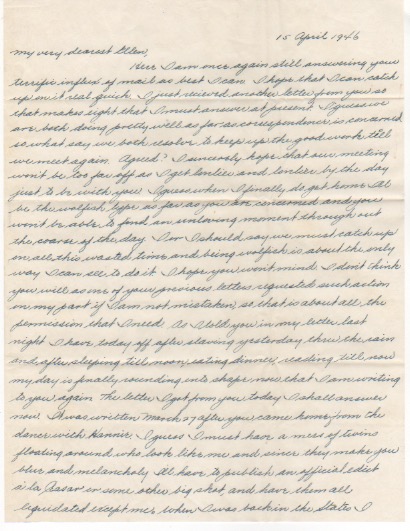 15 April 1946
My very dearest Ellen,
Here I am once again still answering your
terrific influx of mail as best I can. I hope that I can catch
up on it real quick. I just received another letter from you so
that makes eight that I must answer at present. I guess we
are both doing pretty well as far as correspondence is concerned
so what say we both resolve to keep up the good work till
we meet again. Agreed? I sincerely hope that our meeting
won't be too far off as I get lonelier and lonelier by the day
just to be with you. I guess when I finally do get home I'll
be the wolfish type as far as you are concerned and you
won't be able to find an unloving moment through out
the course of the day. I or I should say we must catch up
on all this wasted time and being wolfish is about the only
way I can see to do it. I hope you won't mind. I don't think
you will as one of your previous letters requested such action
on my part if I am not mistaken, so that is about all the
permission that I need. As I told you in my letter last
night I have today off after slaving yesterday thru the rain
and after sleeping till noon, eating dinner, reading till now
my day is finally rounding into shape now that I am writing
to you again. The letter I got from you today I shall answer
now. It was written March 27 after you came home from the
dance with Hannie. I guess I must have a mess of twins
floating around who look like me and since they make you
blue and melancholy I'll have to publish an official edict
a la Caesar or some other big shot, and have them all
liquidated except me. When I was back in the States I